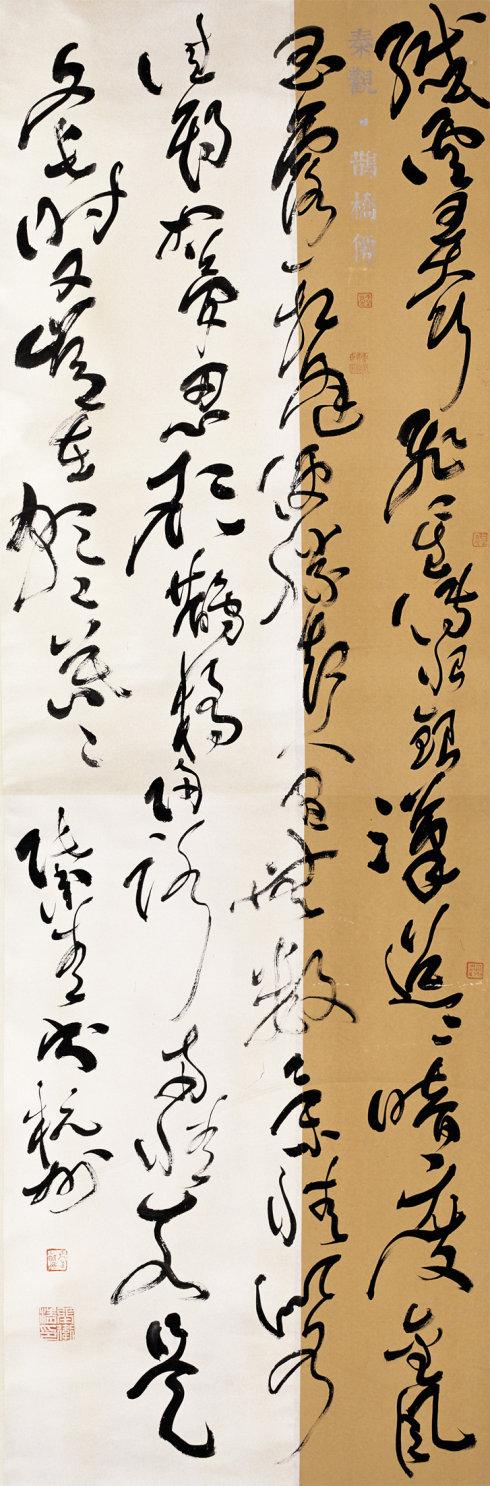 秦觀·鵲橋僊
纖雲弄巧飛星傳恨銀漢迢迢暗度金風
玉露一相逢便勝卻人間無數柔情似水
佳期如夢忍顧鵲橋歸路兩情若是
久長時又豈在朝朝暮暮
書杭州